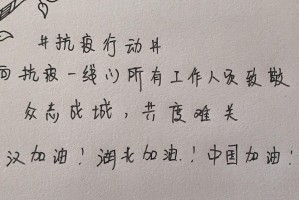 #抗疫行动#
向抗疫一线的所有工作人员致敬
众志成城，共度难关
汉加油！湖北加油！中国加油！